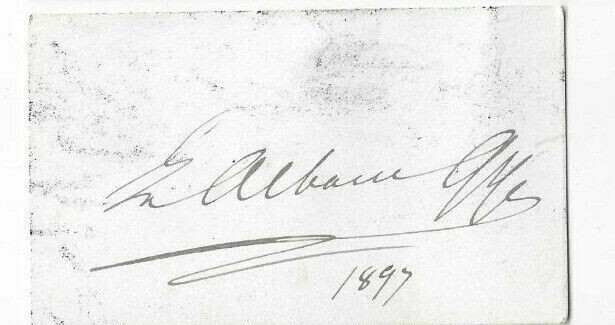 E Albani Gye
1897